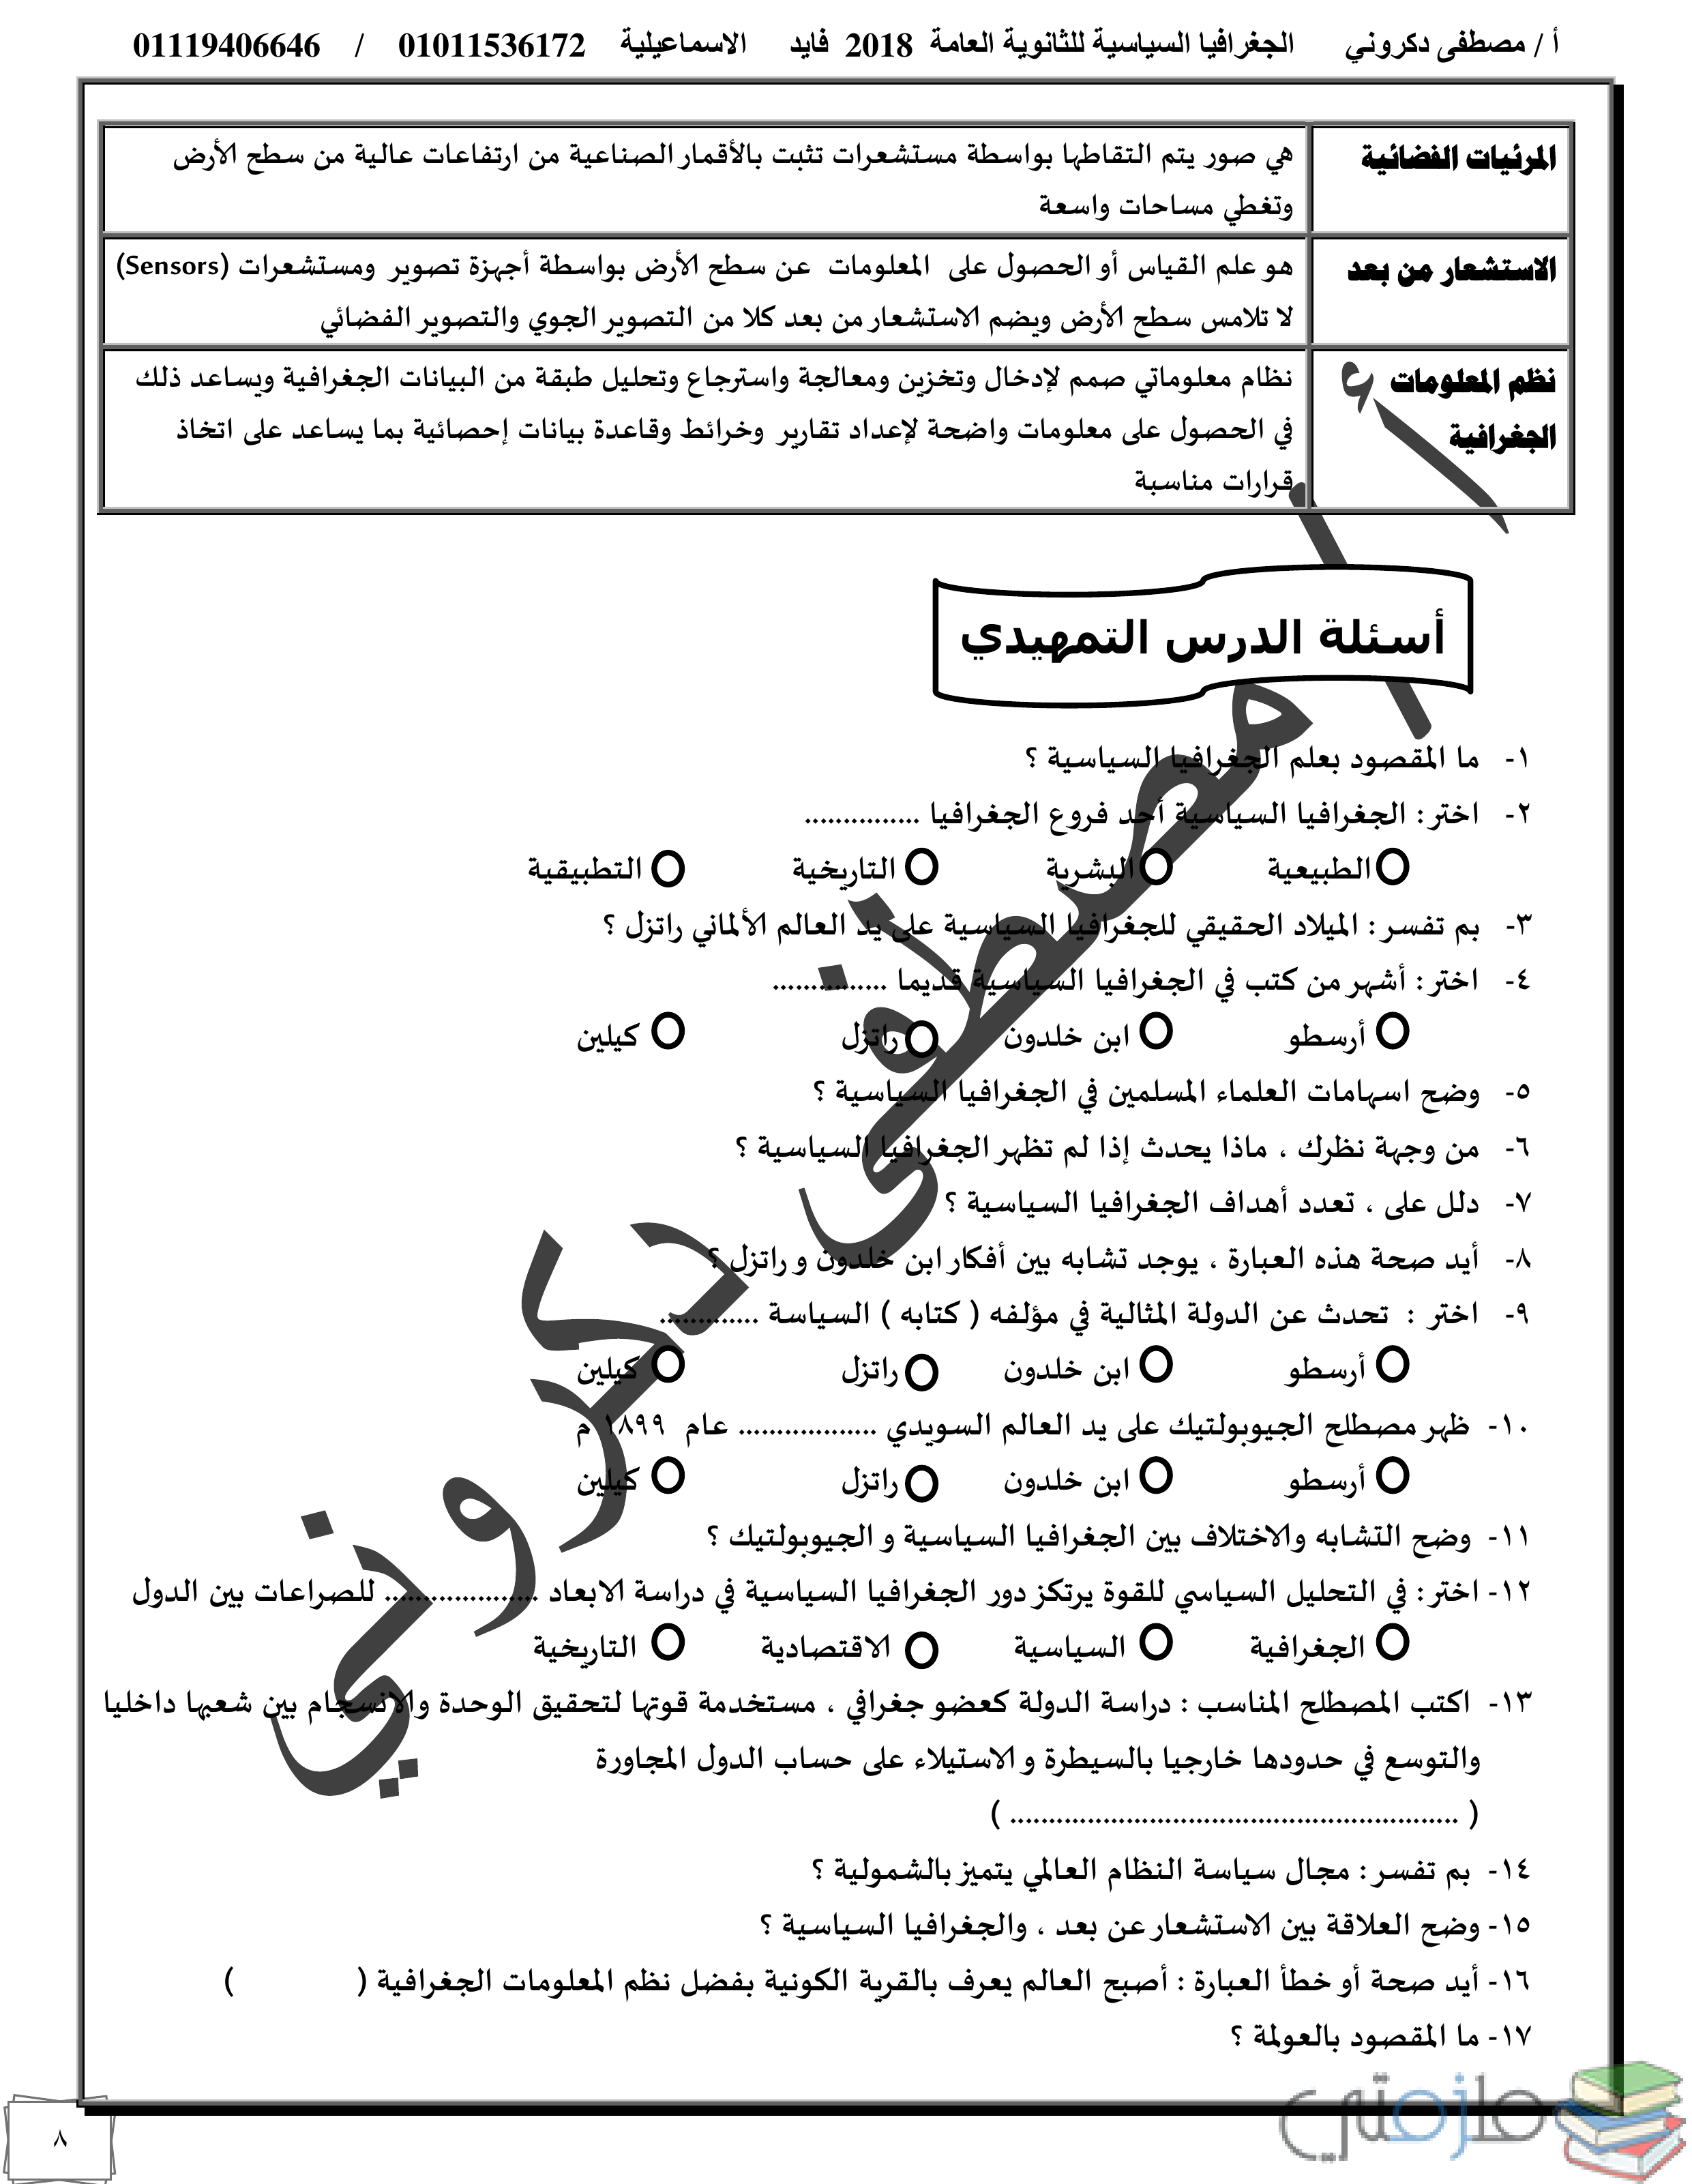 أ / مصطفى دكروني الجغرافيا السياسية للثانوية العامة 2018 فايد الاسماعيلية 01011536172 / 01119406646
المرئيات الفضائية
هي صور يتم التقاطها بواسطة مستشعرات تثبت بالأقمار الصناعية من ارتفاعات عالية من سطح الأرض
وتغطي مساحات واسعة
الاستشعار من بعد
هو علم القياس أو الحصول على المعلومات عن سطح الأرض بواسطة أجهزة تصوير ومستشعرات (Sensors)
لا تلامس سطح الأرض ويضم الاستشعار من بعد كلا من التصوير الجوي والتصوير الفضائي
نظم المعلومات
الجغرافية
نظام معلوماتي صمم لإدخال وتخزين ومعالجة واسترجاع وتحليل طبقة من البيانات الجغرافية ويساعد ذلك
في الحصول على معلومات واضحة لإعداد تقارير وخرائط وقاعدة بيانات إحصائية بما يساعد على اتخاذ
قرارات مناسبة
أسئلة الدرس التمهيدي
١- ما المقصود بعلم الجغرافيا السياسية ؟
٢- اختر : الجغرافيا السياسية أحد فروع الجغرافيا ...............
الطبيعية البشرية التاريخية التطبيقية
٣- بم تفسر : الميلاد الحقيقي للجغرافيا السياسية على يد العالم الألماني راتزل ؟
٤- اختر : أشهر من كتب في الجغرافيا السياسية قديما ...............
أرسطو ابن خلدون راتزل كيلين
٥- وضح اسهامات العلماء المسلمين في الجغرافيا السياسية ؟
٦- من وجهة نظرك ، ماذا يحدث إذا لم تظهر الجغرافيا السياسية ؟
٧- دلل على ، تعدد أهداف الجغرافيا السياسية ؟
٨- أيد صحة هذه العبارة ، يوجد تشابه بين أفكار ابن خلدون و راتزل ؟
٩- اختر : تحدث عن الدولة المثالية في مؤلفه ( كتابه ) السياسة .............
أرسطو ابن خلدون راتزل كيلين
١٠- ظهر مصطلح الجيوبولتيك على يد العالم السويدي .................. عام ١٨٩٩ م
أرسطو ابن خلدون راتزل كيلين
١١- وضح التشابه والاختلاف بين الجغرافيا السياسية و الجيوبولتيك ؟
١٢- اختر : في التحليل السياسي للقوة يرتكز دور الجغرافيا السياسية في دراسة الابعاد .................... للصراعات بين الدول
الجغرافية السياسية الاقتصادية التاريخية
١٣- اكتب المصطلح المناسب : دراسة الدولة كعضو جغرافي ، مستخدمة قوتها لتحقيق الوحدة والانسجام بين شعبها داخليا
والتوسع في حدودها خارجيا بالسيطرة و الاستيلاء على حساب الدول المجاورة
( .......................................................... )
١٤- بم تفسر : مجال سياسة النظام العالمي يتميز بالشمولية ؟
١٥- وضح العلاقة بين الاستشعار عن بعد ، والجغرافيا السياسية ؟
١٦- أيد صحة أو خطأ العبارة : أصبح العالم يعرف بالقرية الكونية بفضل نظم المعلومات الجغرافية ( )
١٧- ما المقصود بالعولمة ؟
أ / مصطفى دكروني
ملزمتي
٨